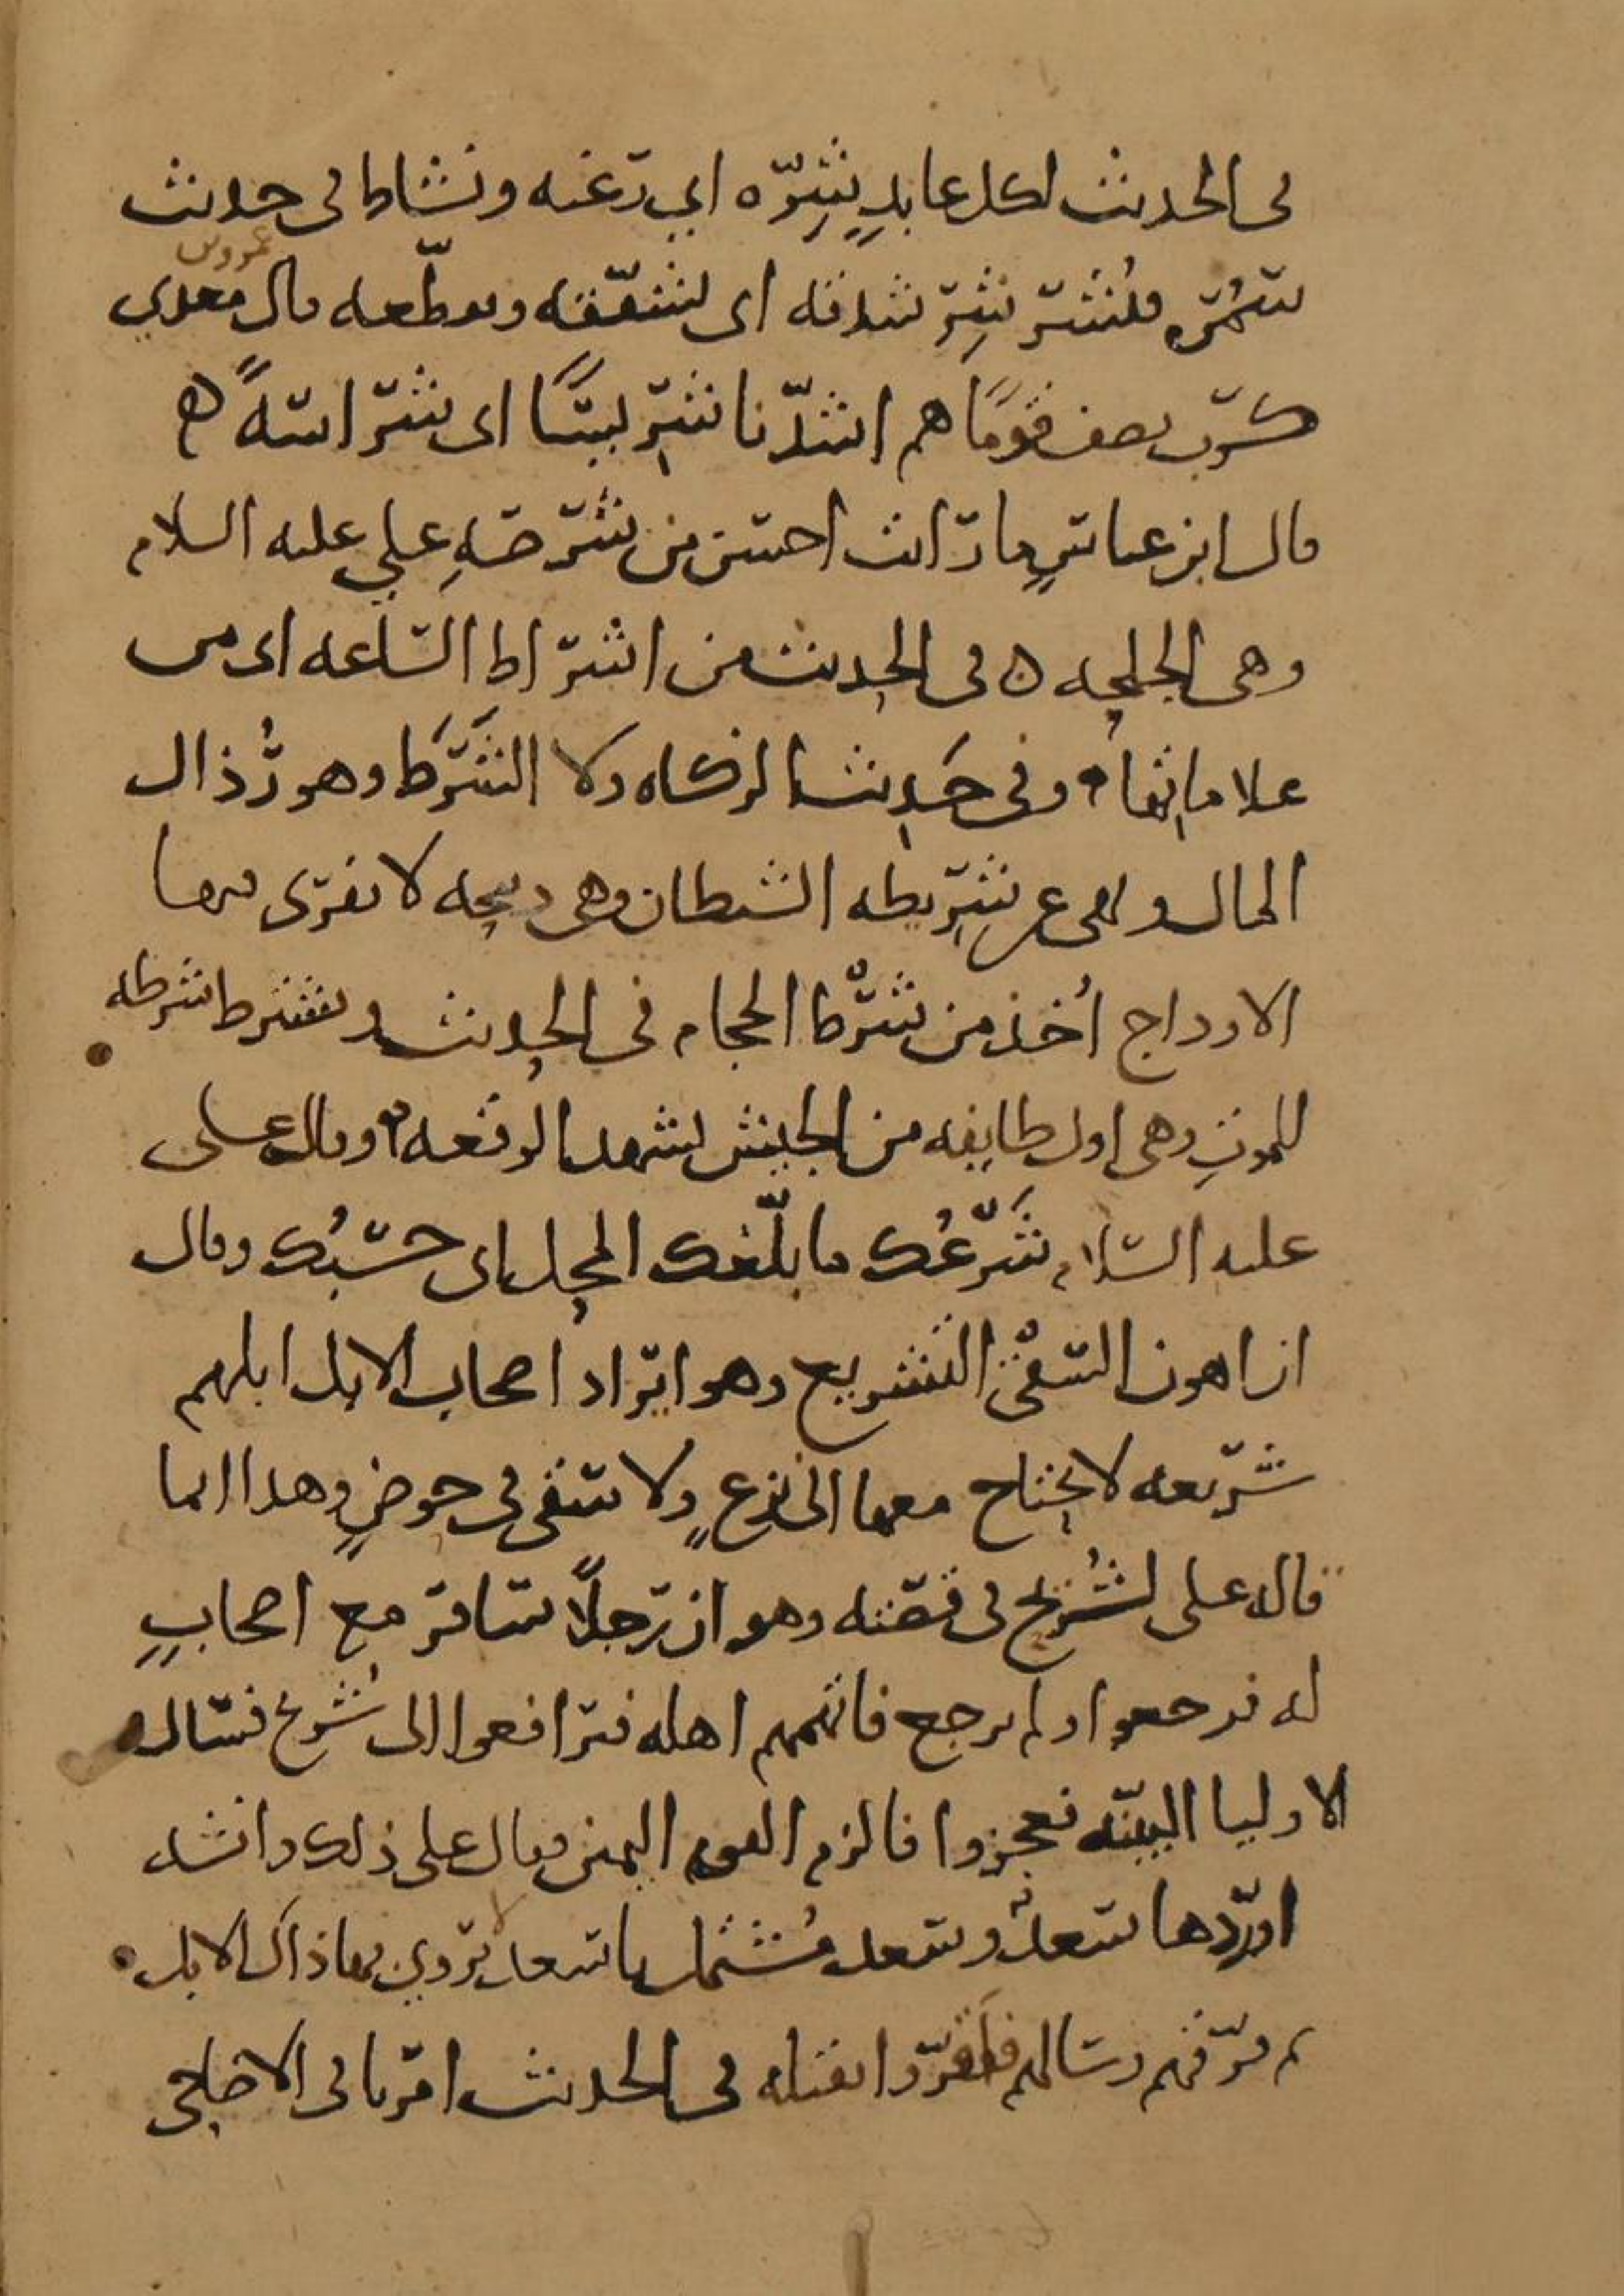 في الحديث لكل عابدٍ شِرّه اي رغبه ونشاط في حديث
سمُره فيُشرشِر شدقه اي يشقّقه ويقطّعه قال عمرو بن معدي
كرب يصف قومًا هم اشدّنا شرّ لبيسًا اى شراسةً
قال ابن عباسٍ ما رايت احسن من شرصةِ علي عليه السلام
وهى الجلحه في الحديث من اشراط الساعه اى من
علاماتها وفى حديث الزكاه ولا الشَّرَط وهو رُذال
المال ونهى عن شريطه الشيطان وهى ذبيحه لا يفرى فيها
الاوداج اُخذ من شرْط الحجام في الحديث وتشترط شرطه
للموتِ وهى اول طايفه من الجيش تشهد الوقعه وقال على
عليه السلام شَرْعُك ما بلّغك المحل اى حسْبُك وقال
ان اهون السقْى التشريع وهو ايراد اصحاب الابل ابلهم
شريعه لا يحتاج معها الى نزعٍ ولا سقى في حوضٍ وهذا انما
قال على لشُريح فى قصّته وهو ان رجلًا سافر مع اصحابٍ
له فرجعوا ولم يرجع فاتهمهم اهله فترافعوا الى شُريح فسال
الاوليا البيّنه فعجزوا فالزم القوم اليمين فقال على ذلك وانشد
اوردها سعدٌ وسعد مُشتمل يا سعد تروي بها ذاك الابل
ثم فرّقهم وسالهم فاقَرّوا بقتله في الحديث امرنا فى الاضاحى